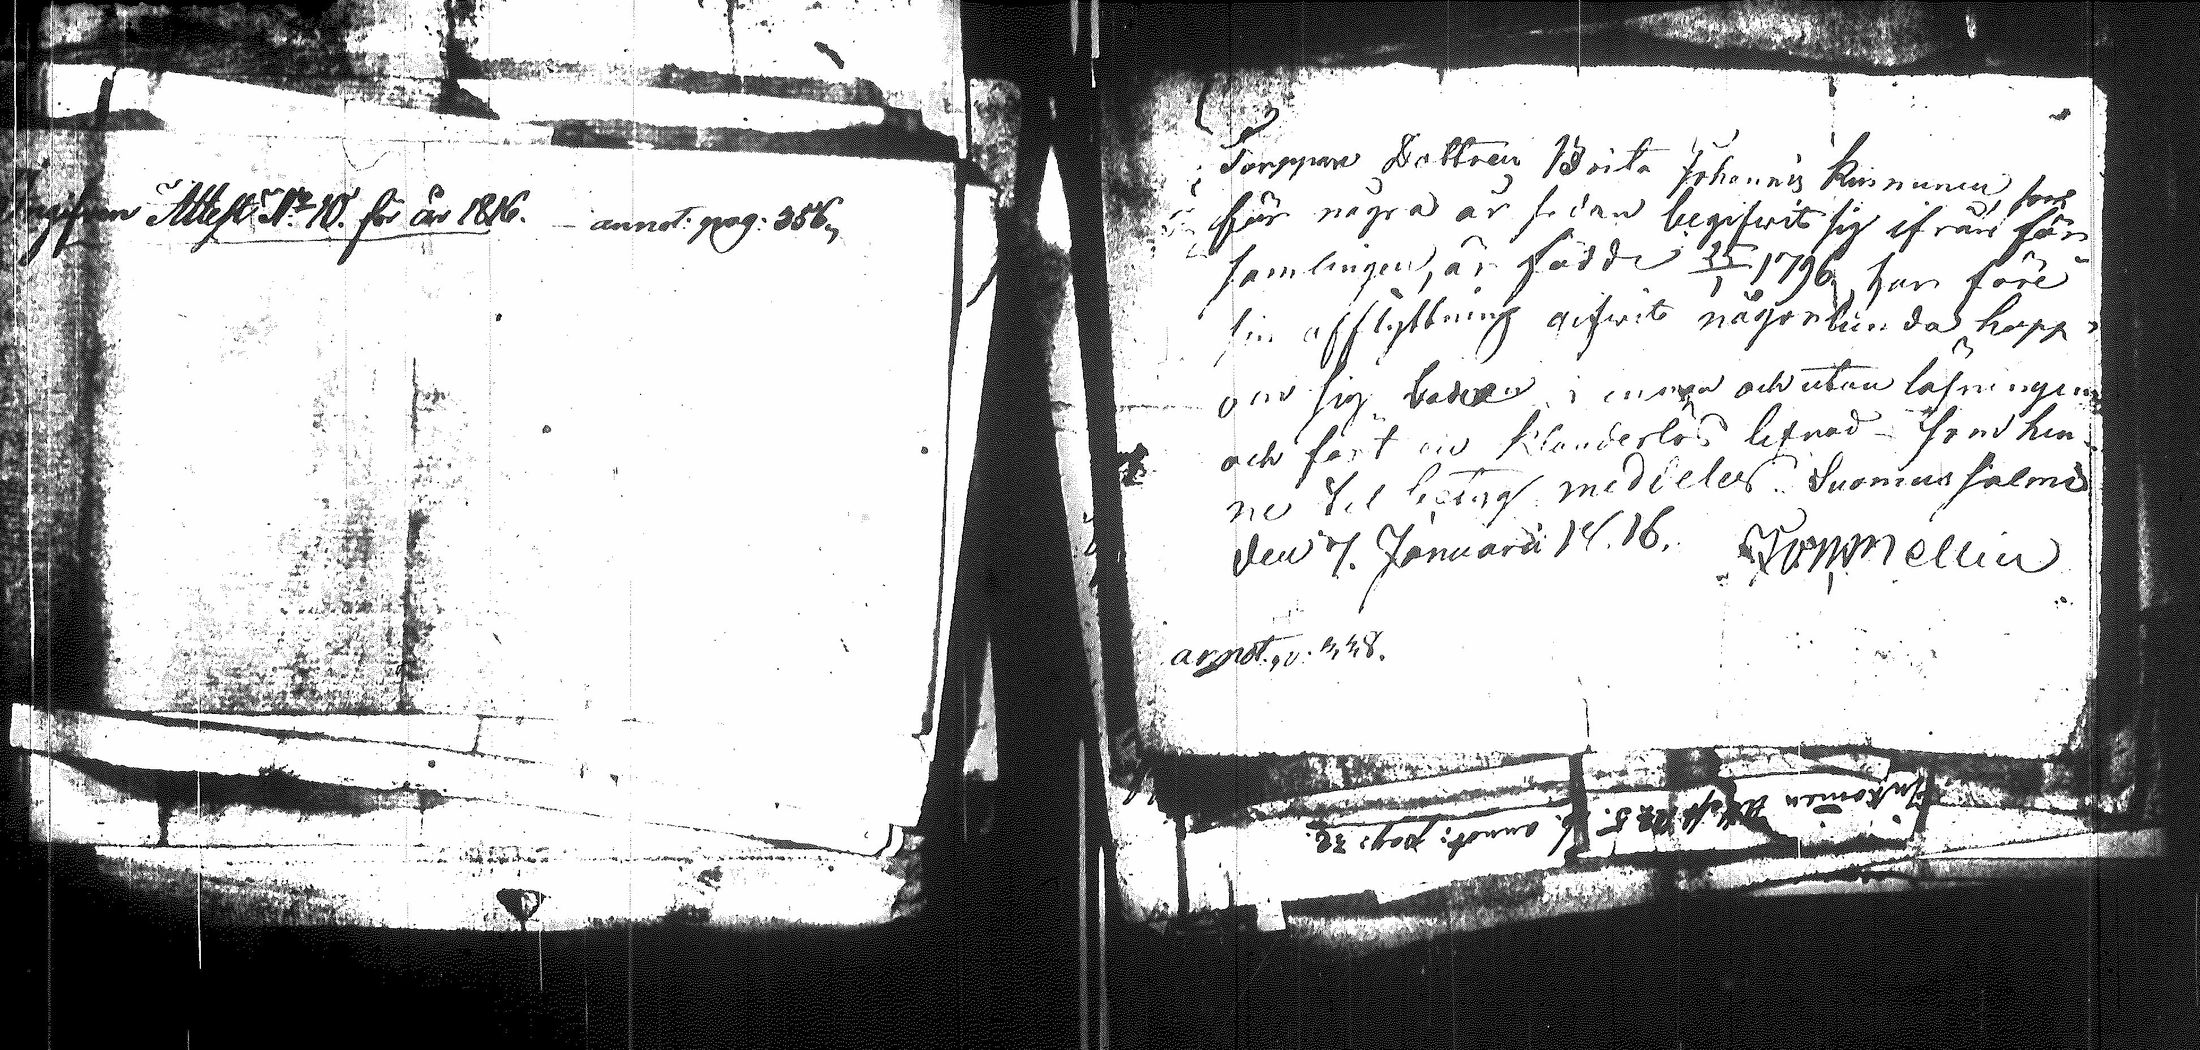 Ingifven Attest N:o 10. för år 1816. annot: pag: 356,
Torppare Dottren Brita Johannis Kinnunen som
för några år sedan begifwit sig ifrån för
samlingen, är född 25/1 1796, har före
sin afflyttning gifwit någorlunda hopp
om sig, i innan och utan läsningen
och fört en klanderlös lefnad – som hen-
ne til betyg meddeles. Suomussalmi
den 7. Januarii 1816. Tommellin
annot. p: 338.
Inkommen Attest N:o 5. annot: pag: 32